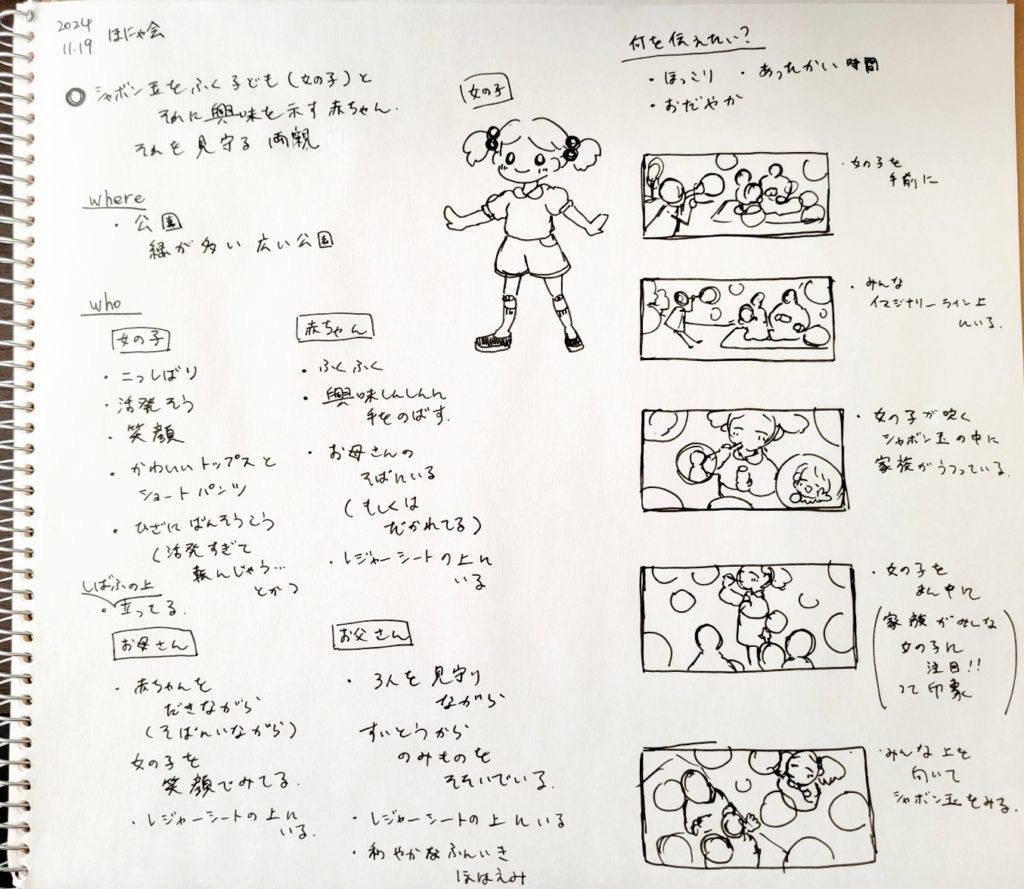 2024
11.19 ほにゃ会
◎ シャボン玉をふく子ども(女の子)と
それに興味を示す赤ちゃん.
それを見守る両親
where
・公園
緑が多い広い公園
who
女の子
・にっしばり
・活発そう
・笑顔
・かわいいトップスと
ショートパンツ
・ひざにばんそうこう
(活発すぎて
転んじゃう…
とか)
しばふの上
・立ってる.
赤ちゃん
・ふくふく
・興味しんしんに
手をのばす.
・お母さんの
そばにいる
(もしくは
だかれてる)
・レジャーシートの上に
いる
お母さん
・赤ちゃんを
だきながら
(そばにいながら)
女の子を
笑顔でみてる.
・レジャーシートの上に
いる.
お父さん
・3人を見守り
ながら
すいとうから
のみものを
そそいでいる.
・レジャーシートの上にいる
・和やかなふんいき
ほほえみ
女の子
何を伝えたい?
・ほっこり ・あったかい時間
・おだやか
・女の子を
手前に
・みんな
イマジナリーライン上
にいる.
・女の子が吹く
シャボン玉の中に
家族がうつっている.
・女の子を
まん中に
(家族がみんな
女の子に
注目!!
って印象)
・みんな上を
向いて
シャボン玉をみる.